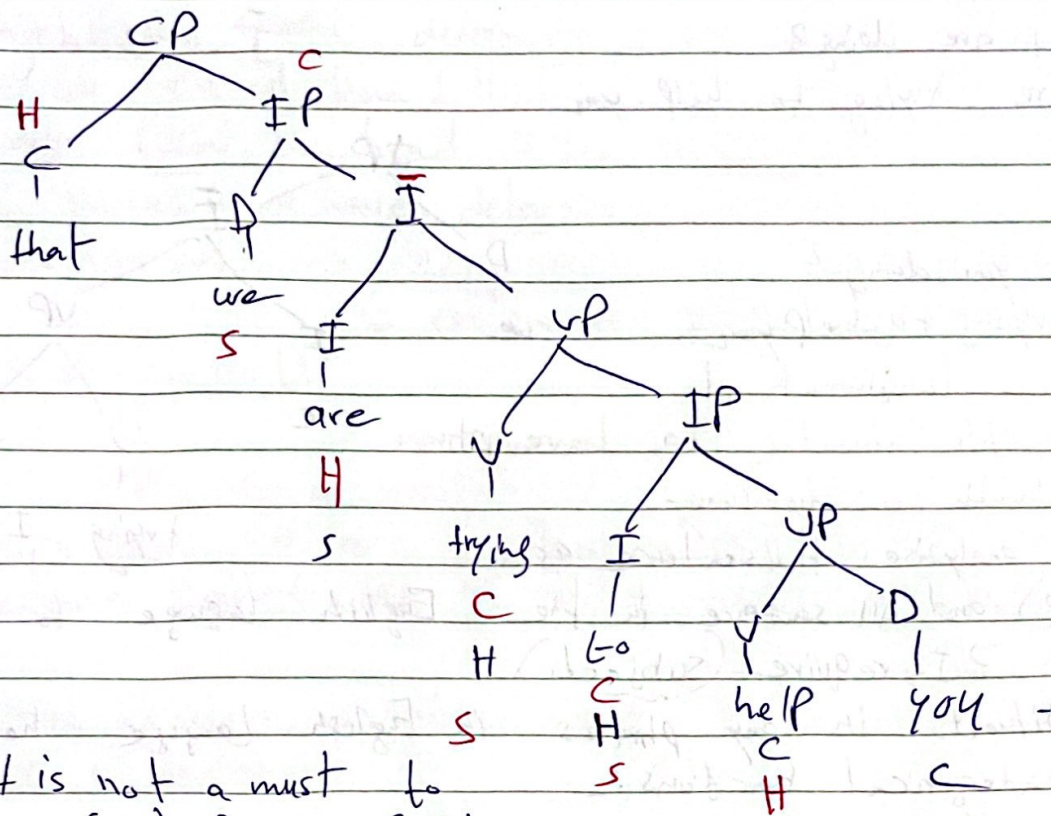 CP
H C
IP
C
that
D Ī
we
S
I vP
are
H
S
V IP
trying
C
H
S
I VP
to
C
H
S
V D
help you
C C
H
t is not a must to